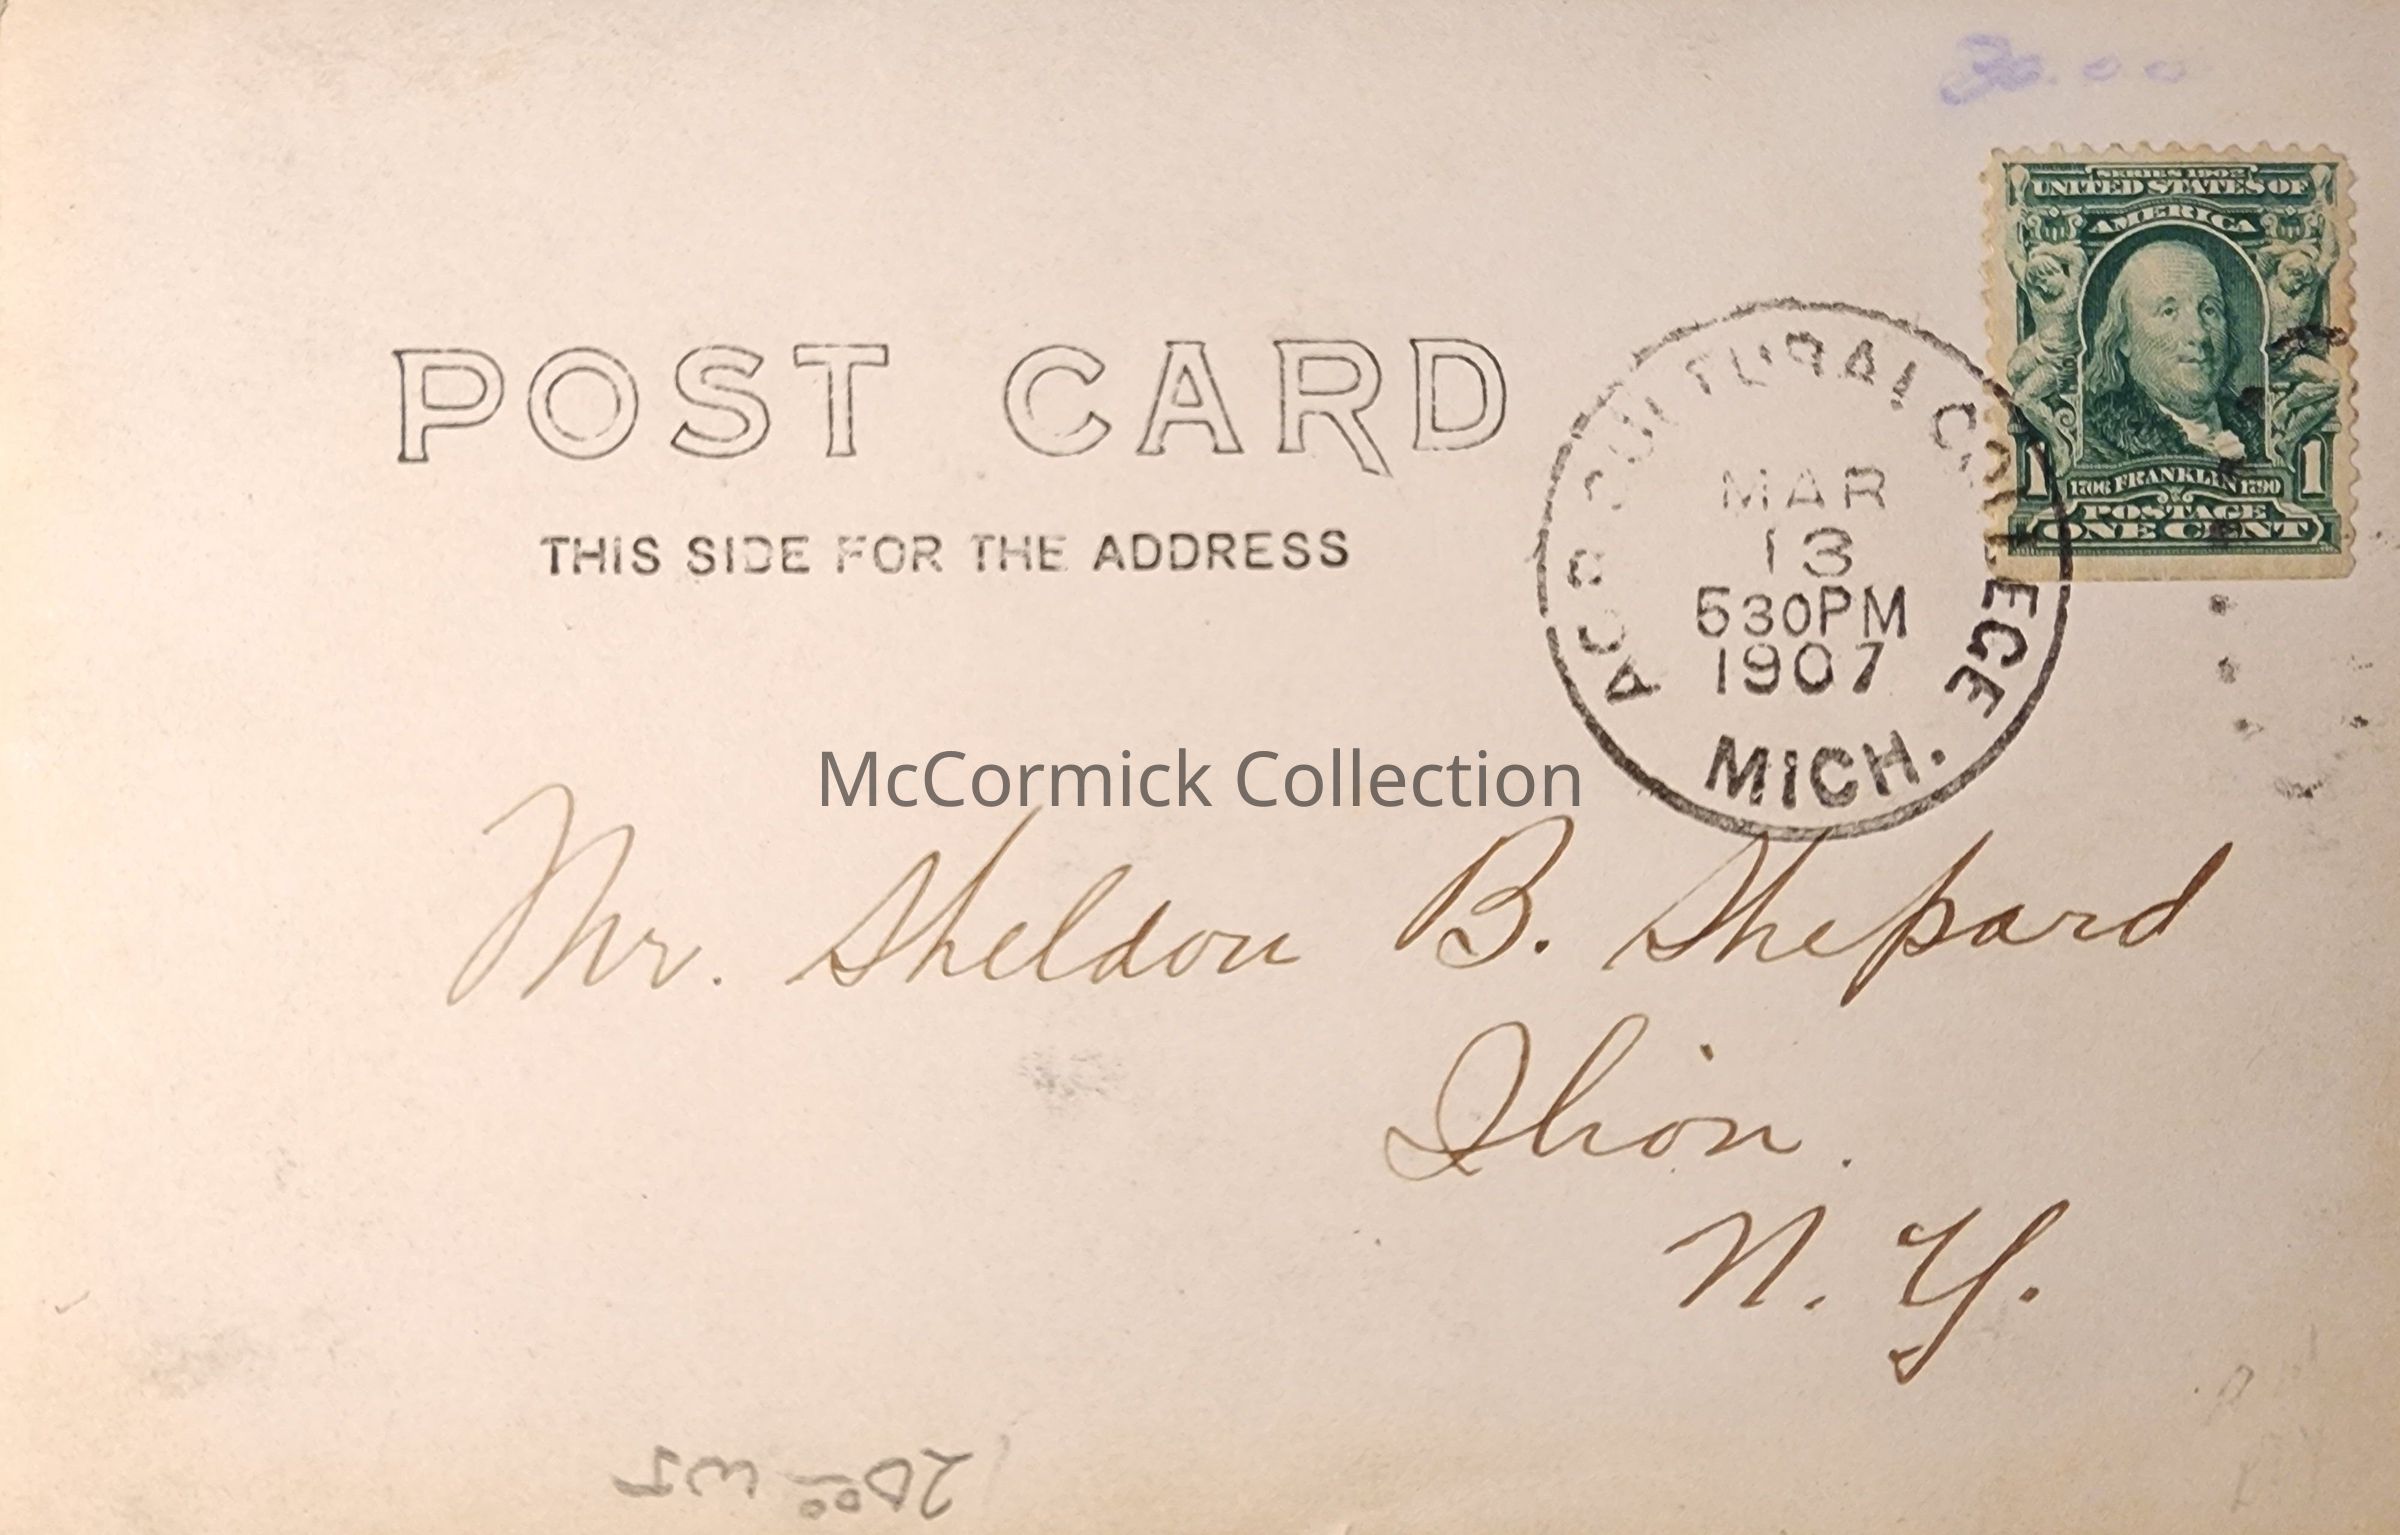 30.00
SERIES 1902
UNITED STATES OF
AMERICA
1 1706 FRANKLIN 1790 1
POSTAGE
ONE CENT
POST CARD
THIS SIDE FOR THE ADDRESS
AGRICULTURAL COLLEGE
MAR
13
530PM
1907
MICH.
McCormick Collection
Mr. Sheldon B. Shepard
Ilion.
N. Y.
2000